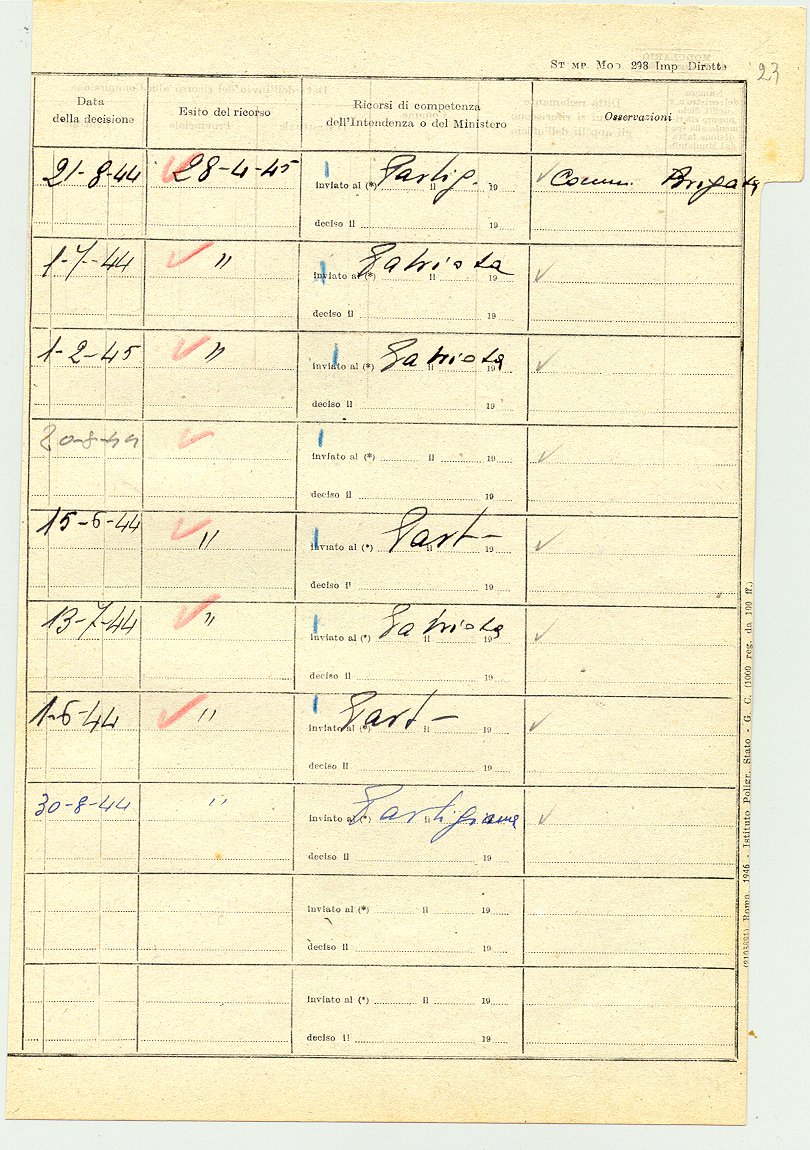 ST MP. MOD 298 Imp Dirette
23
Data della decisione
Esito del ricorso
Ricorsi di competenza dell'Intendenza o del Ministero
Osservazioni
21-8-44 28-4-45 Partig. Comm. Brigata
inviato al (*) il 19
deciso il 19
1-7-44 " Patriota
inviato al (*) il 19
deciso il 19
1-2-45 " Patriota
inviato al (*) il 19
deciso il 19
20-8-44
inviato al (*) il 19
deciso il 19
15-6-44 " Part-
inviato al (*) il 19
deciso il 19
13-7-44 " Patriota
inviato al (*) il 19
deciso il 19
1-6-44 " Part-
inviato al (*) il 19
deciso il 19
30-8-44 " Partigiana
inviato al (*) il 19
deciso il 19
inviato al (*) il 19
deciso il 19
inviato al (*) il 19
deciso il 19
(2103881) Roma, 1946 - Istituto Poligr. Stato - G. C. (1000 reg. da 100 ff.)